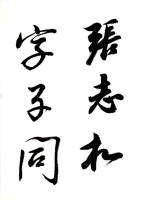 張志和
字子同